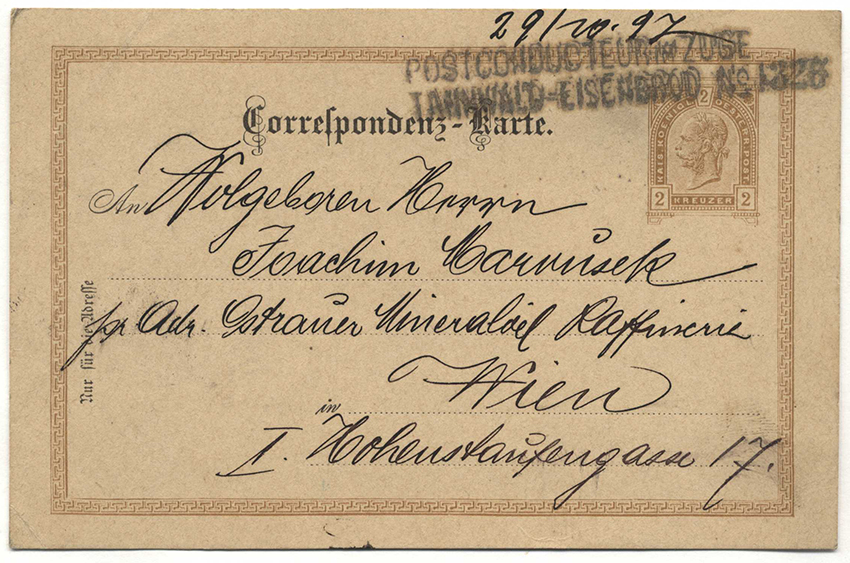 29/10. 97
POSTCONDUCTEUR IM ZUGE
TANNWALD-EISENBROD No 1326
Correspondenz-Karte.
2
KAIS. KOENIGL. OESTERR. POST
2 KREUZER 2
An Wolgeboren Herrn
Joachim Marousek
pr Adr. Ostrauer Mineraloel Raffinerie
Wien
in
I. Hohenstaufengasse 17.
Nur für die Adresse